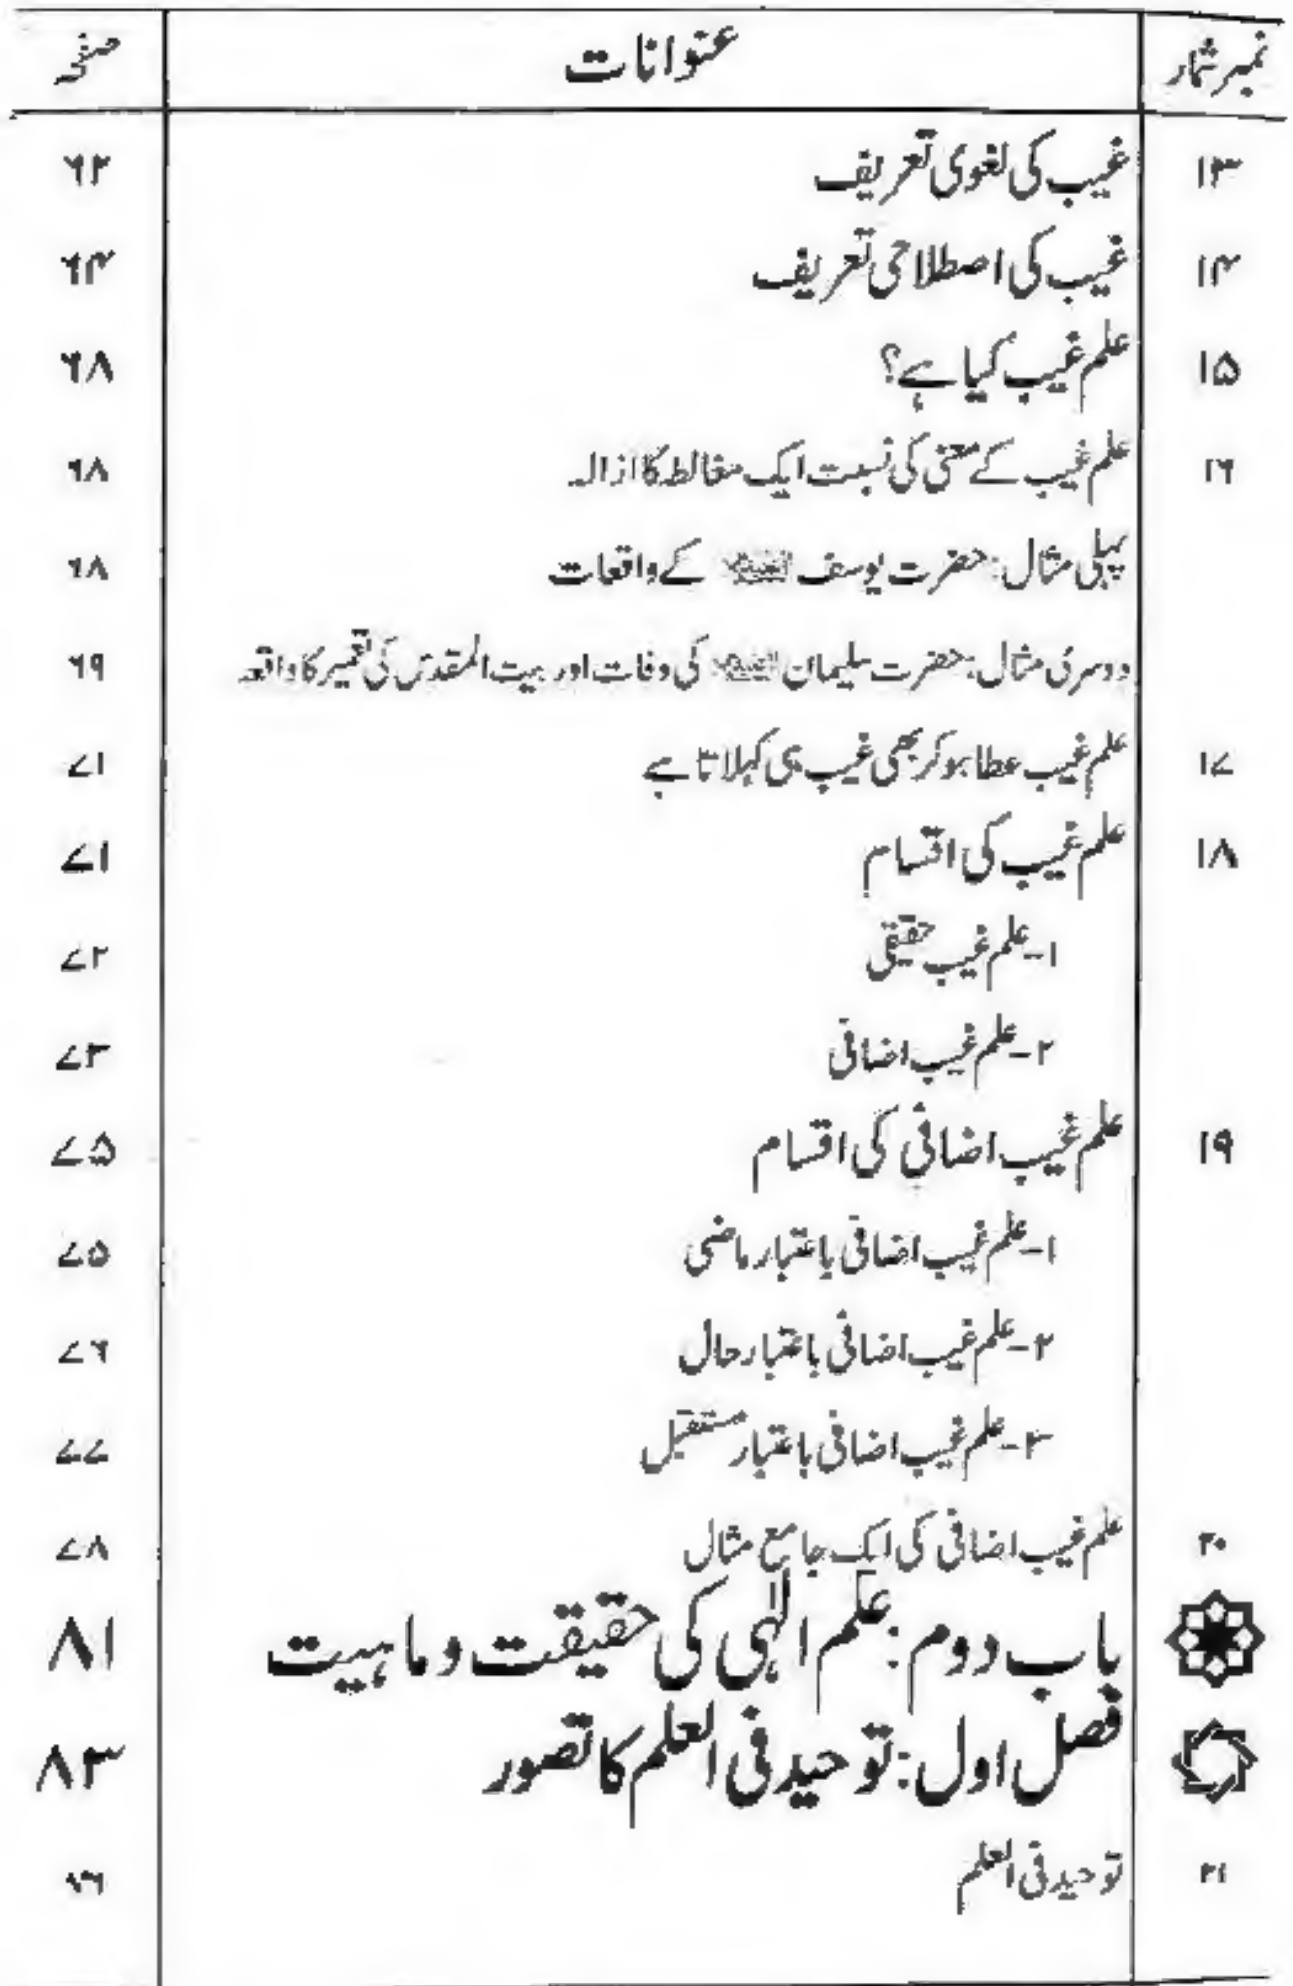 نمبر شمار عنوانات صفحہ
۱۳ غیب کی لغوی تعریف ۶۲
۱۴ غیب کی اصطلاحی تعریف ۶۴
۱۵ علم غیب کیا ہے؟ ۶۸
۱۶ علم غیب کے معنی کی نسبت ایک مغالطہ کا ازالہ ۶۸
پہلی مثال: حضرت یوسف کے واقعات ۶۸
دوسری مثال: حضرت سلیمان کی وفات اور بیت المقدس کی تعمیر کا واقعہ ۶۹
۱۷ علم غیب عطا ہو کر بھی غیب ہی کہلاتا ہے ۷۱
۱۸ علم غیب کی اقسام ۷۱
۱۔ علم غیب حقیقی ۷۲
۲۔ علم غیب اضافی ۷۳
۱۹ علم غیب اضافی کی اقسام ۷۵
۱۔ علم غیب اضافی باعتبار ماضی ۷۵
۲۔ علم غیب اضافی باعتبار حال ۷۶
۳۔ علم غیب اضافی باعتبار مستقبل ۷۷
۲۰ علم غیب اضافی کی ایک جامع مثال ۷۸
باب دوم: علم الٰہی کی حقیقت و ماہیت ۸۱
فصل اول: توحید فی العلم کا تصور ۸۳
۲۱ توحید فی العلم